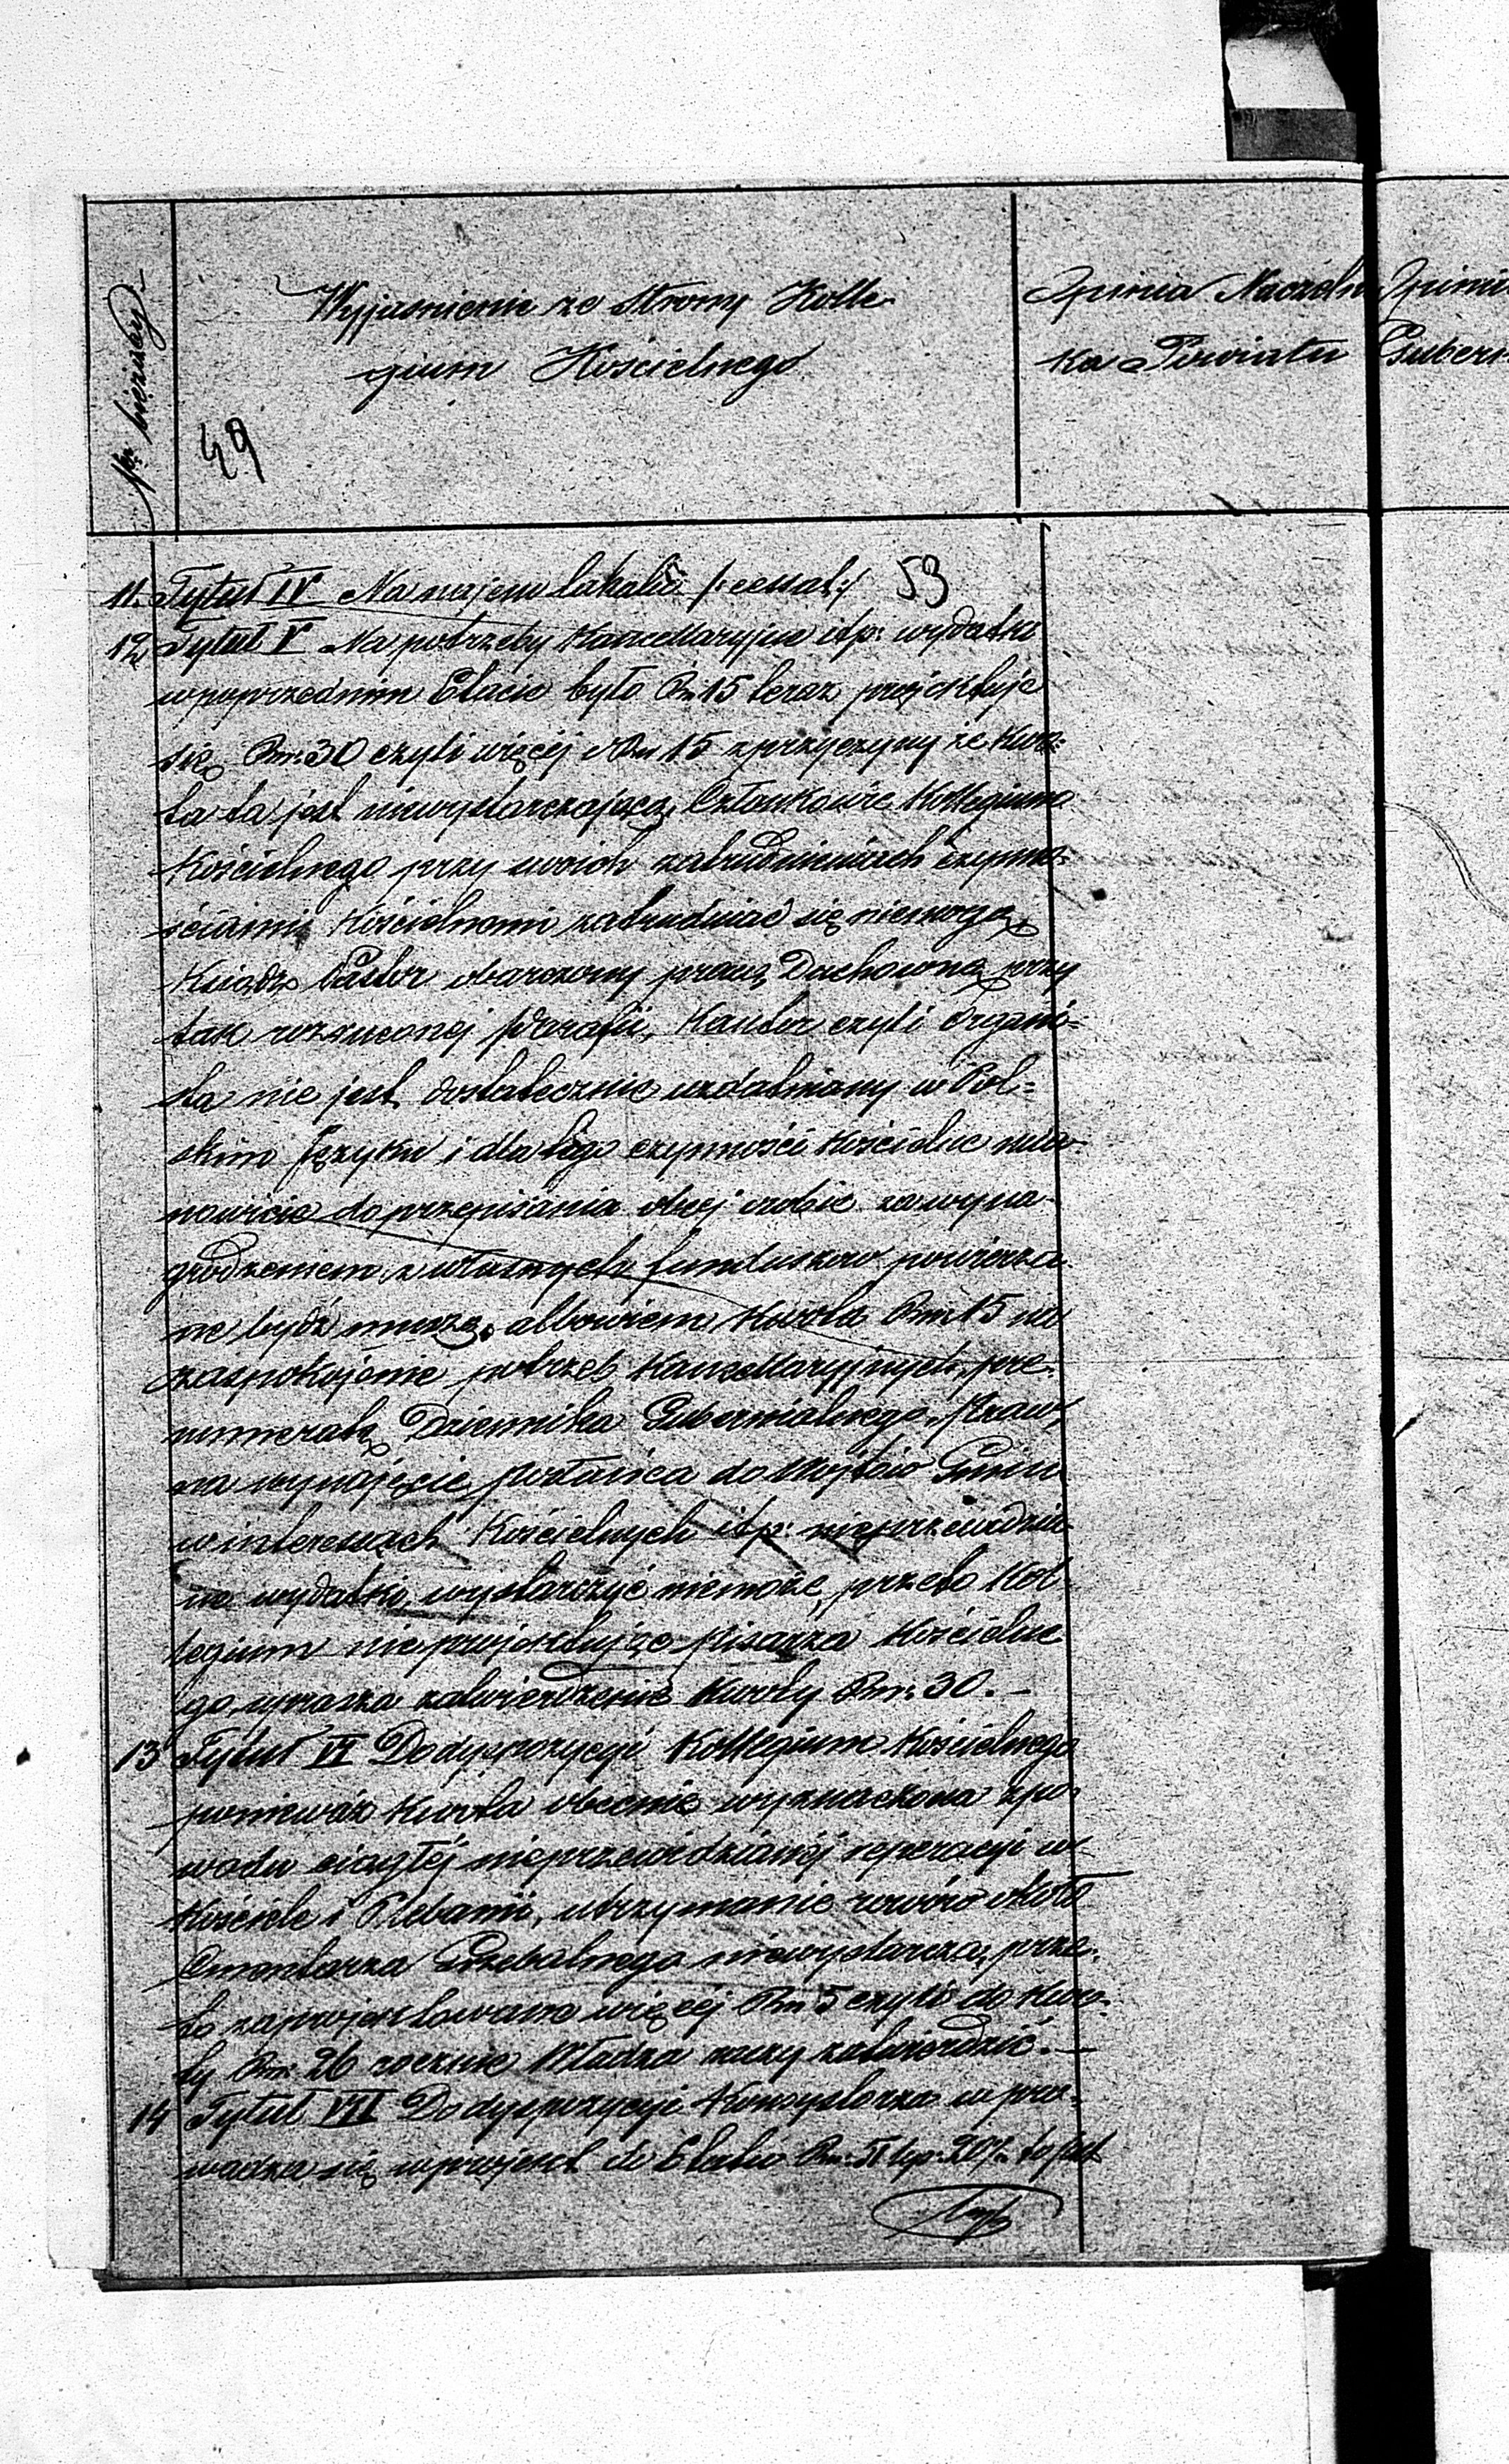 Nr. bieżący
Wyjaśnienie ze Strony Kolle
gium Kościelnego
Opinia Naczelni
ka Powiatu
Opini
Gubern
49
53
11. Tytuł IV Na najem lokalu /: cessat :/
12. Tytuł V Na potrzeby Kancellaryjne itp: wydatki
w poprzednim Etacie było Rs. 15 teraz projektuje
się Rs. 30 czyli więcej o Rs. 15 z przyczyny że Kwo=
ta ta jest niewystarczającą, Członkowie Kollegium
Kościelnego przy swoich zatrudnieniach czynno=
ściami Kościelnemi zatrudniać się niemogą,
Ksiądz Pastor obarczony pracą Duchowną przy
tak rozrzuconej Parafii, Kantor czyli Organi=
sta nie jest dostatecznie uzdatniony w Pol=
skim Języku i dla tego czynności Kościelne mia=
nowicie do przepisania obcej osobie za wyna=
grodzeniem z własnych funduszów powierza=
ne bydź muszą, albowiem Kwota Rs. 15 na
zaspokojenie potrzeb Kancellaryjnych, pre=
numeratę Dziennika Gubernialnego, Praw,
na wynajęcie posłańca do Wojtów Gmin
w interessach Kościelnych itp: nieprzewidzia=
ne wydatki, wystarczyć niemoże, przeto Kol=
legium nieprojektując Pisarza Kościelne
go, uprasza zatwierdzenie Kwoty Rs. 30. –
13 Tytuł VI Do dyspozycyi Kollegium Kościelnego
ponieważ Kwota obecnie wyznaczona z po=
wodu ciągłéj nieprzewidzianéj reperacyi w
Kościele i Plebanii, utrzymanie rowów około
Cmentarza Grzebalnego niewystarcza, prze=
to zaprojektowano więcéj Rs. 5 czyli do Kwo=
ty Rs. 26 rocznie Władza raczy zatwierdzić. –
14 Tytuł VII Do dyspozycyi Konsystorza w pro=
wadza się w projekt do Etatu Rs. 5 kop. 20½ to jest